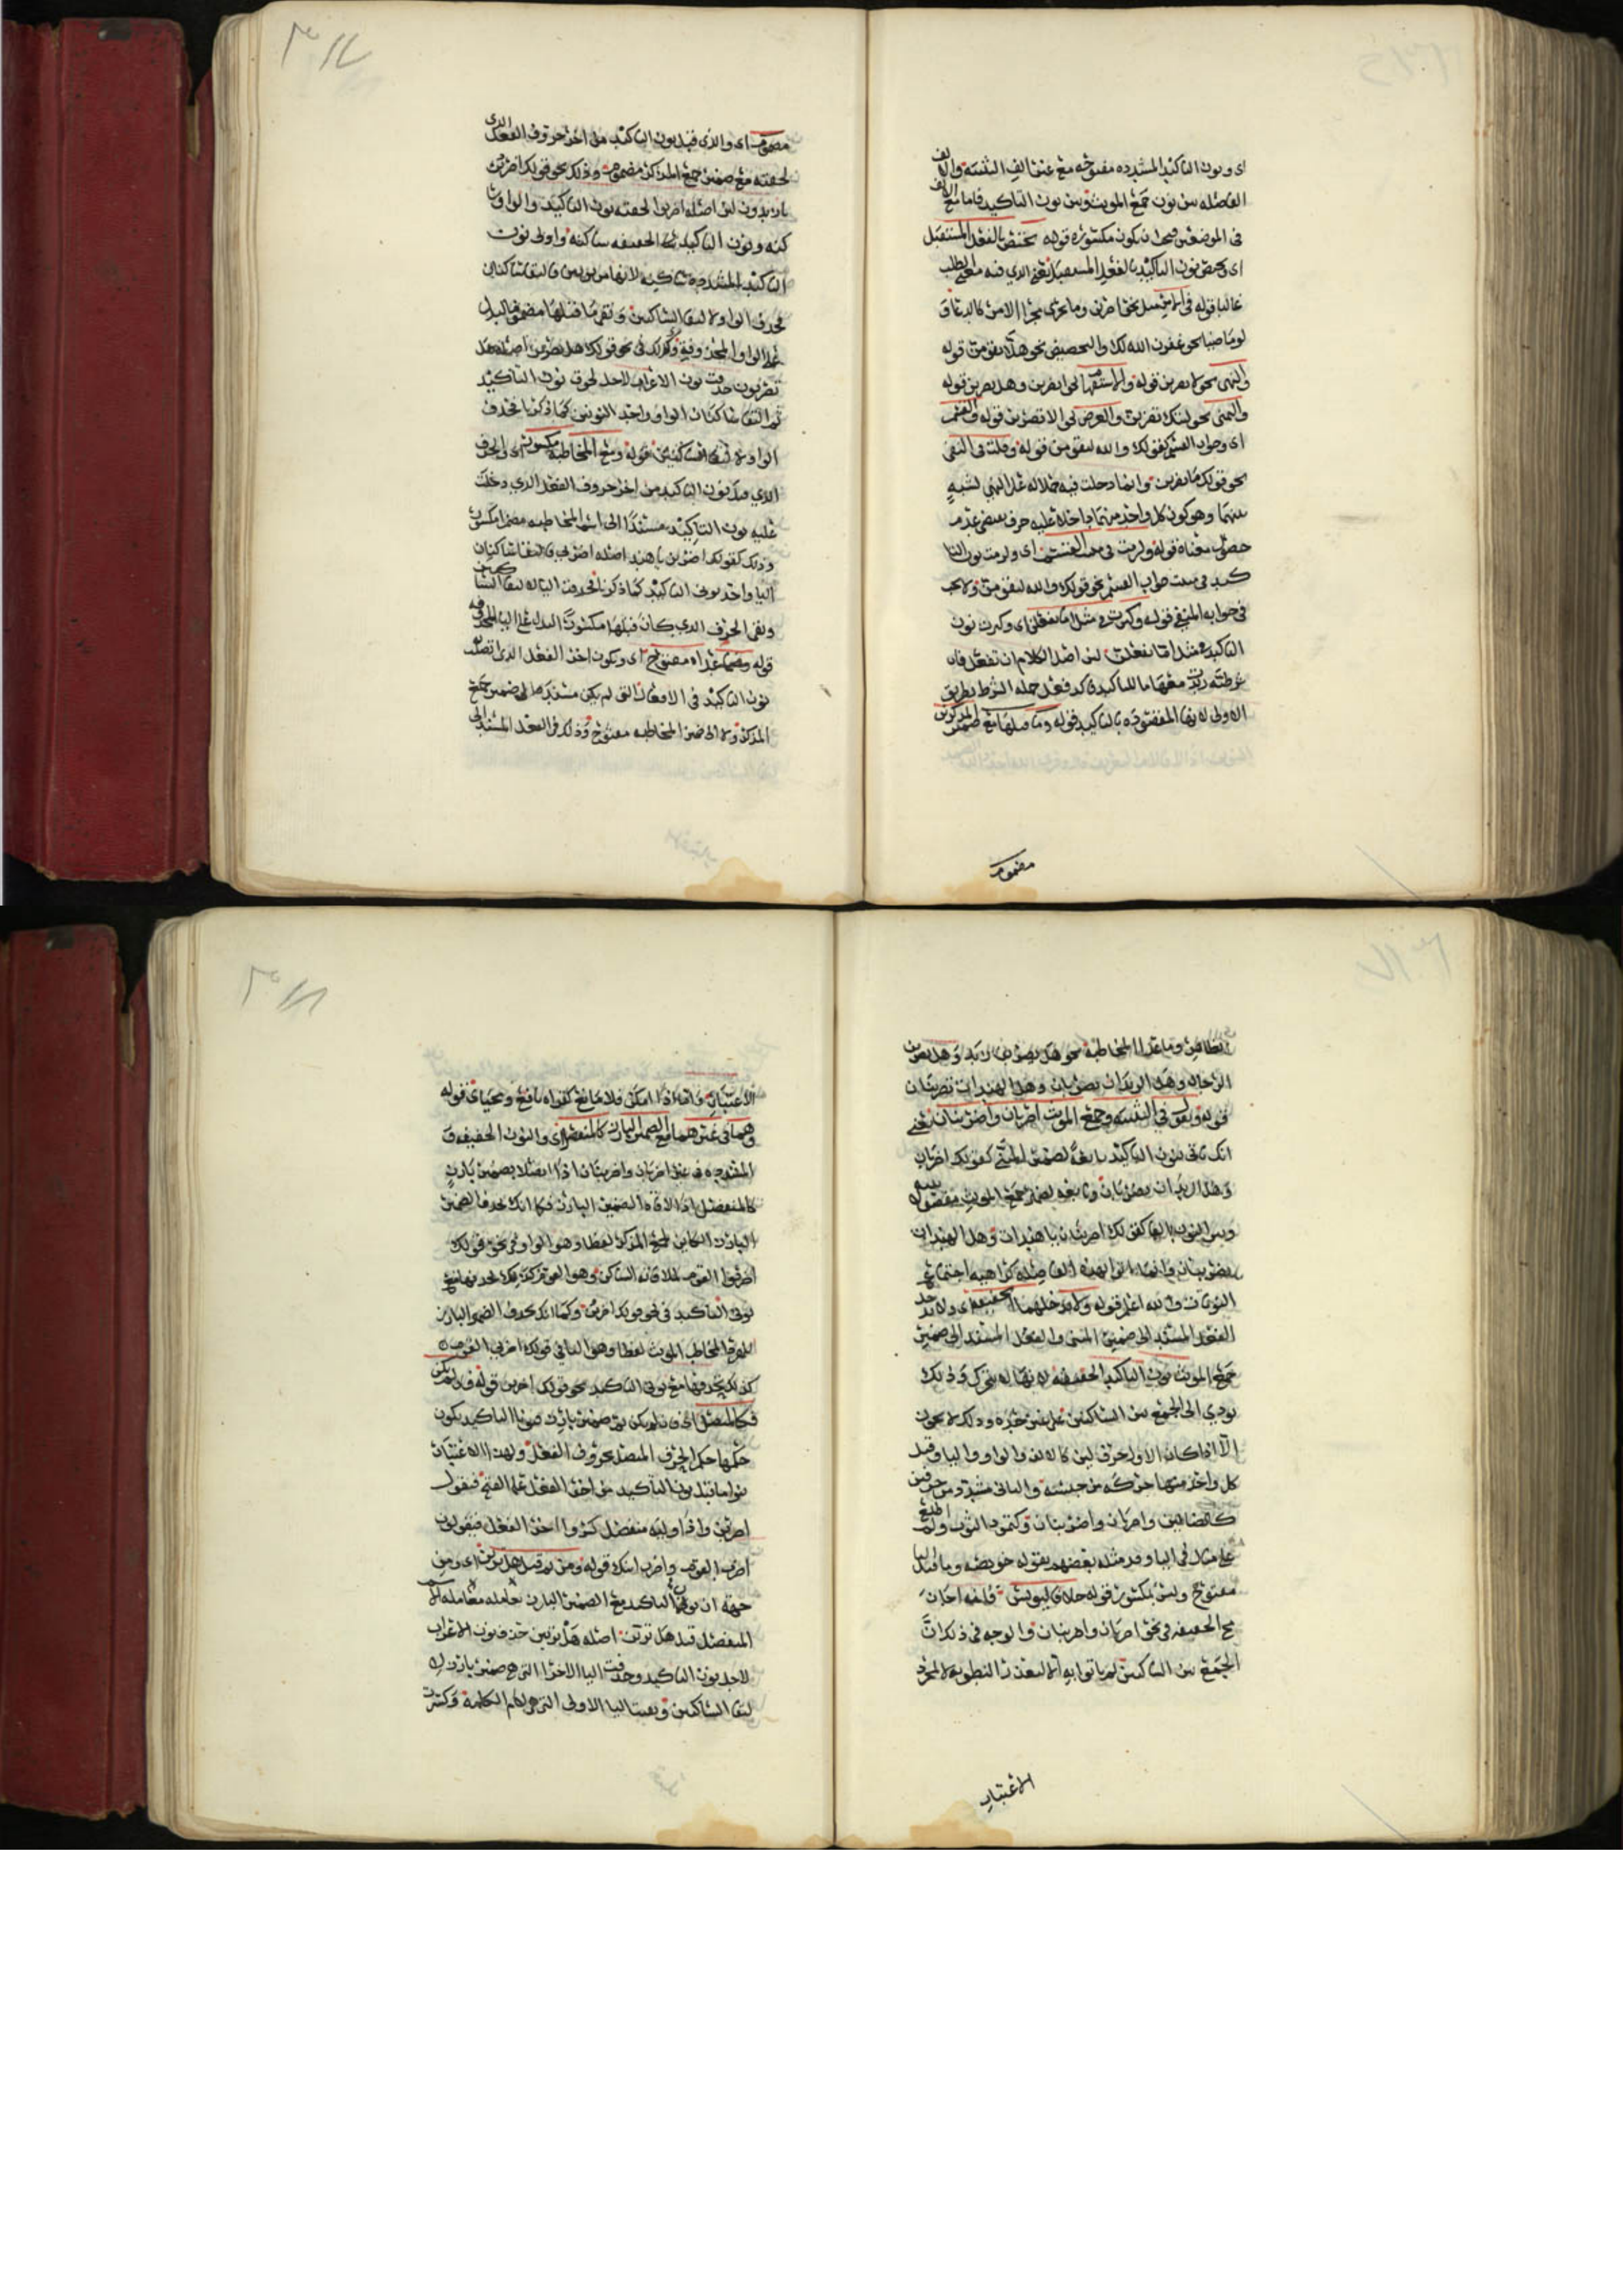 اى ونون التاكيد المشدده مفتوحه مع غير الف التثنيه والالف
الفاصله بين نون جمع المونث وبين نون التاكيد فاما مع الالف
فى الموضعين فيجب ان تكون مكسوره قوله تختص بالفعل المستقبل
اى وتختص نون التاكيد بالفعل المستقبل يعنى الذي فيه معنى الطلب
غالبا قوله فى الامر مثل نحو اضربن وما جرى مجرا الامر كالدعا
نحو غفرن الله لك والتحضيض نحو هلا تقومن قوله
والنهى نحو لا تضربن قوله والاستفهام نحو اتضربن وهل تضربن قوله
والتمنى نحو ليتك تضربن والعرض نحو الا تضربن قوله والقسم
اى وجواب القسم كقولك والله لتقومن قوله وقلت فى النفى
نحو قولك ما تضربن وانما دخلت فيه حملا له على النهي لشبه
بينهما وهو كون كل واحد منهما داخلا عليه حرف يقتضى عدم
حصول معناه قوله ولزمت فى مثبت القسم اى ولزمت نون التا
كيد فى مثبت جواب القسم نحو قولك والله لتقومن ولا يجب
فى جوابه المنفي قوله وكثرت فى مثل اما تفعلن اى وكثرت نون
التاكيد فى مثل اما تفعلن لان اصل الكلام ان تفعل فان
شرطيه زيدت معها ما للتاكيد فاكد فعل جمله الشرط بطريق
الاولى لانها المقصوده بالتاكيد قوله وما قبلها مع ضمير المذكرين
مضموم
٣١٧
مضموم اى والذى قبل نون التاكيد من اخر حروف الفعل الذى
لحقته مع ضمير جمع المذكر مضموم وذلك نحو قولك اضربن
يا زيدون لان اصله اضربوا لحقته نون التاكيد والواو سا
كنه ونون التاكيد الخفيفه ساكنه واولى نون
التاكيد المشدده ساكنه لانها من نونين فالتقا ساكنان
فحذف الواو لالتقا الساكنين وبقى ما قبلها مضموما ليدل
على الواو المحذوفة وكذلك فى نحو قولك هل تضربن اصله هل
تضربون حذفت نون الاعراب لاجل لحوق نون التاكيد
ثم التقا ساكنان الواو واحد النونين كما ذكرنا فحذف
الواو لالتقا الساكنين قوله ومع المخاطبه مكسور اى والحرف
الذي قبل نون التاكيد من اخر حروف الفعل الذي دخلت
عليه نون التاكيد مسندا الى اسم المخاطبه مكسور
وذلك كقولك اضربن يا هند اصله اضربي فالتقا ساكنان
اليا واحد نونى التاكيد كما ذكرنا فحذفت اليا لالتقا الساكنين
وبقى الحرف الذي كان قبلها مكسورا ليدل على اليا المحذوفه
قوله وفيما عداه مفتوح اى ويكون اخر الفعل الذى اتصلت
نون التاكيد فى الافعال التى لم يكن مسندا الى ضمير جمع
المذكر ولا الى ضمير المخاطبه مفتوح وذلك فى الفعل المسند الى
الغائبين وما عدا المخاطبه نحو هل يضربن زيد وهل يضربن
الرجال وهل الزيدان يضربان وهل الهندات تضربنان
قوله وتقول فى التثنيه وجمع الموث اضربان واضربنان يعنى
انك تاتى بنون التاكيد تابعة لضمير المثنى كقولك اضربان
وهل الزيدان يضربان وتابعه لضمير جمع الموث مفصولا بينه
وبين النون بالف كقولك اضربنان يا هندات وهل الهندات
يضربنان وانما اتوا بهذه الفاصله كراهيه اجتماع
النونات والله اعلم قوله ولا تدخلهما الخفيفه اى ولا تدخل
الفعل المسند الى ضمير المثنى والفعل المسند الى ضمير
جمع الموث نون التاكيد الخفيفه لانها لا تتحرك وذلك
يودي الى الجمع بين الساكنين على غير حده وذلك لا يجوز
الا اذا كان الاول حرف لين كالالف والواو واليا وقبل
كل واحد منها حركه من جنسه والثانى مشدد من حرفين
كالضالين واضربان واضربنان وكتمود الثوب ولم اطلع
على مثال فى اليا وقد مثله بعضهم بقوله خويصه وما قبل اليا
مفتوح وليس بمكسور قوله خلافا ليونس فانه اجاز
مع الخفيفه فى نحو اضربان واضربنان والوجه فى ذلك ان
الجمع بين الساكنين لم ياتوا به الا لتعذر النطق به لا لمجرد
الاعتبار
٣١٨
الاعتبار واما اذا امكن فلا مانع كقراه نافع ومحياى قوله
وهما فى غيرهما مع الضمير البارز كالمنفصل اى والنون الخفيفه و
المشدده فى غير اضربان واضربنان اذا اتصلا بضمير بارز
كالمنفصل اذا لاقاه الضمير البارز فكما انك تحذف الضمير
البارز الكاين لجمع المذكر لفظا وهو الواو فى نحو قولك
اضربوا القوم لملاقاته الساكن وهو القوم كذلك تحذفها مع
نونى التاكيد فى نحو قولك اضربن وكما انك تحذف الضمير البارز
للمفرد المخاطب الموث لفظا وهو اليا فى قولك اضربي القوم
كذلك تحذفها مع نونى التاكيد نحو قولك اضربن قوله فان لم يكن
فكالمتصل اى فان لم يكن ثم ضمير بارز فنونا التاكيد يكون
حكمها حكم الحرف المتصل بحروف الفعل ولهذا الاعتبار
بنوا ما قبل نون التاكيد من اخر الفعل على الفتح فيقول
اضربن واذا وليه منفصل كسروا اخر الفعل فيقولون
اضرب القوم واضرب ابنك قوله ومن ثم قيل هل ترين اى ومن
جهة ان نونى التاكيد مع الضمير البارز يعامله معامله
المنفصل قيل هل ترين اصله هل تريين حذف نون الاعراب
لاجل نون التاكيد وحذفت اليا الاخرا التى هى ضمير بارز لا
لتقا الساكنين وبقيت اليا الاولى التى هى لام الكلمة وكسرت